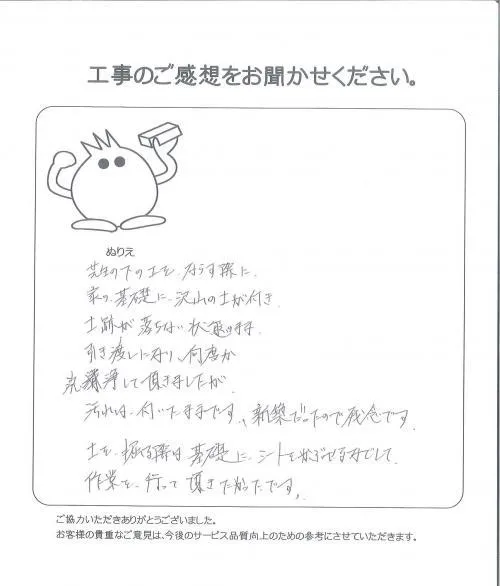 工事のご感想をお聞かせください。
ぬりえ
芝生の下の土を、ならす際に、
家の、基礎に、沢山の土が付き、
土跡が落ちない状態のまま、
引き渡しになり、何度か
洗浄して頂きましたが、
汚れは、付いたままです、新築だったので残念です。
土を、掘る際は基礎に、シートをかぶせるなどして、
作業を、行って頂きたかったです。
ご協力いただきありがとうございました。
お客様の貴重なご意見は、今後のサービス品質向上のための参考にさせていただきます。